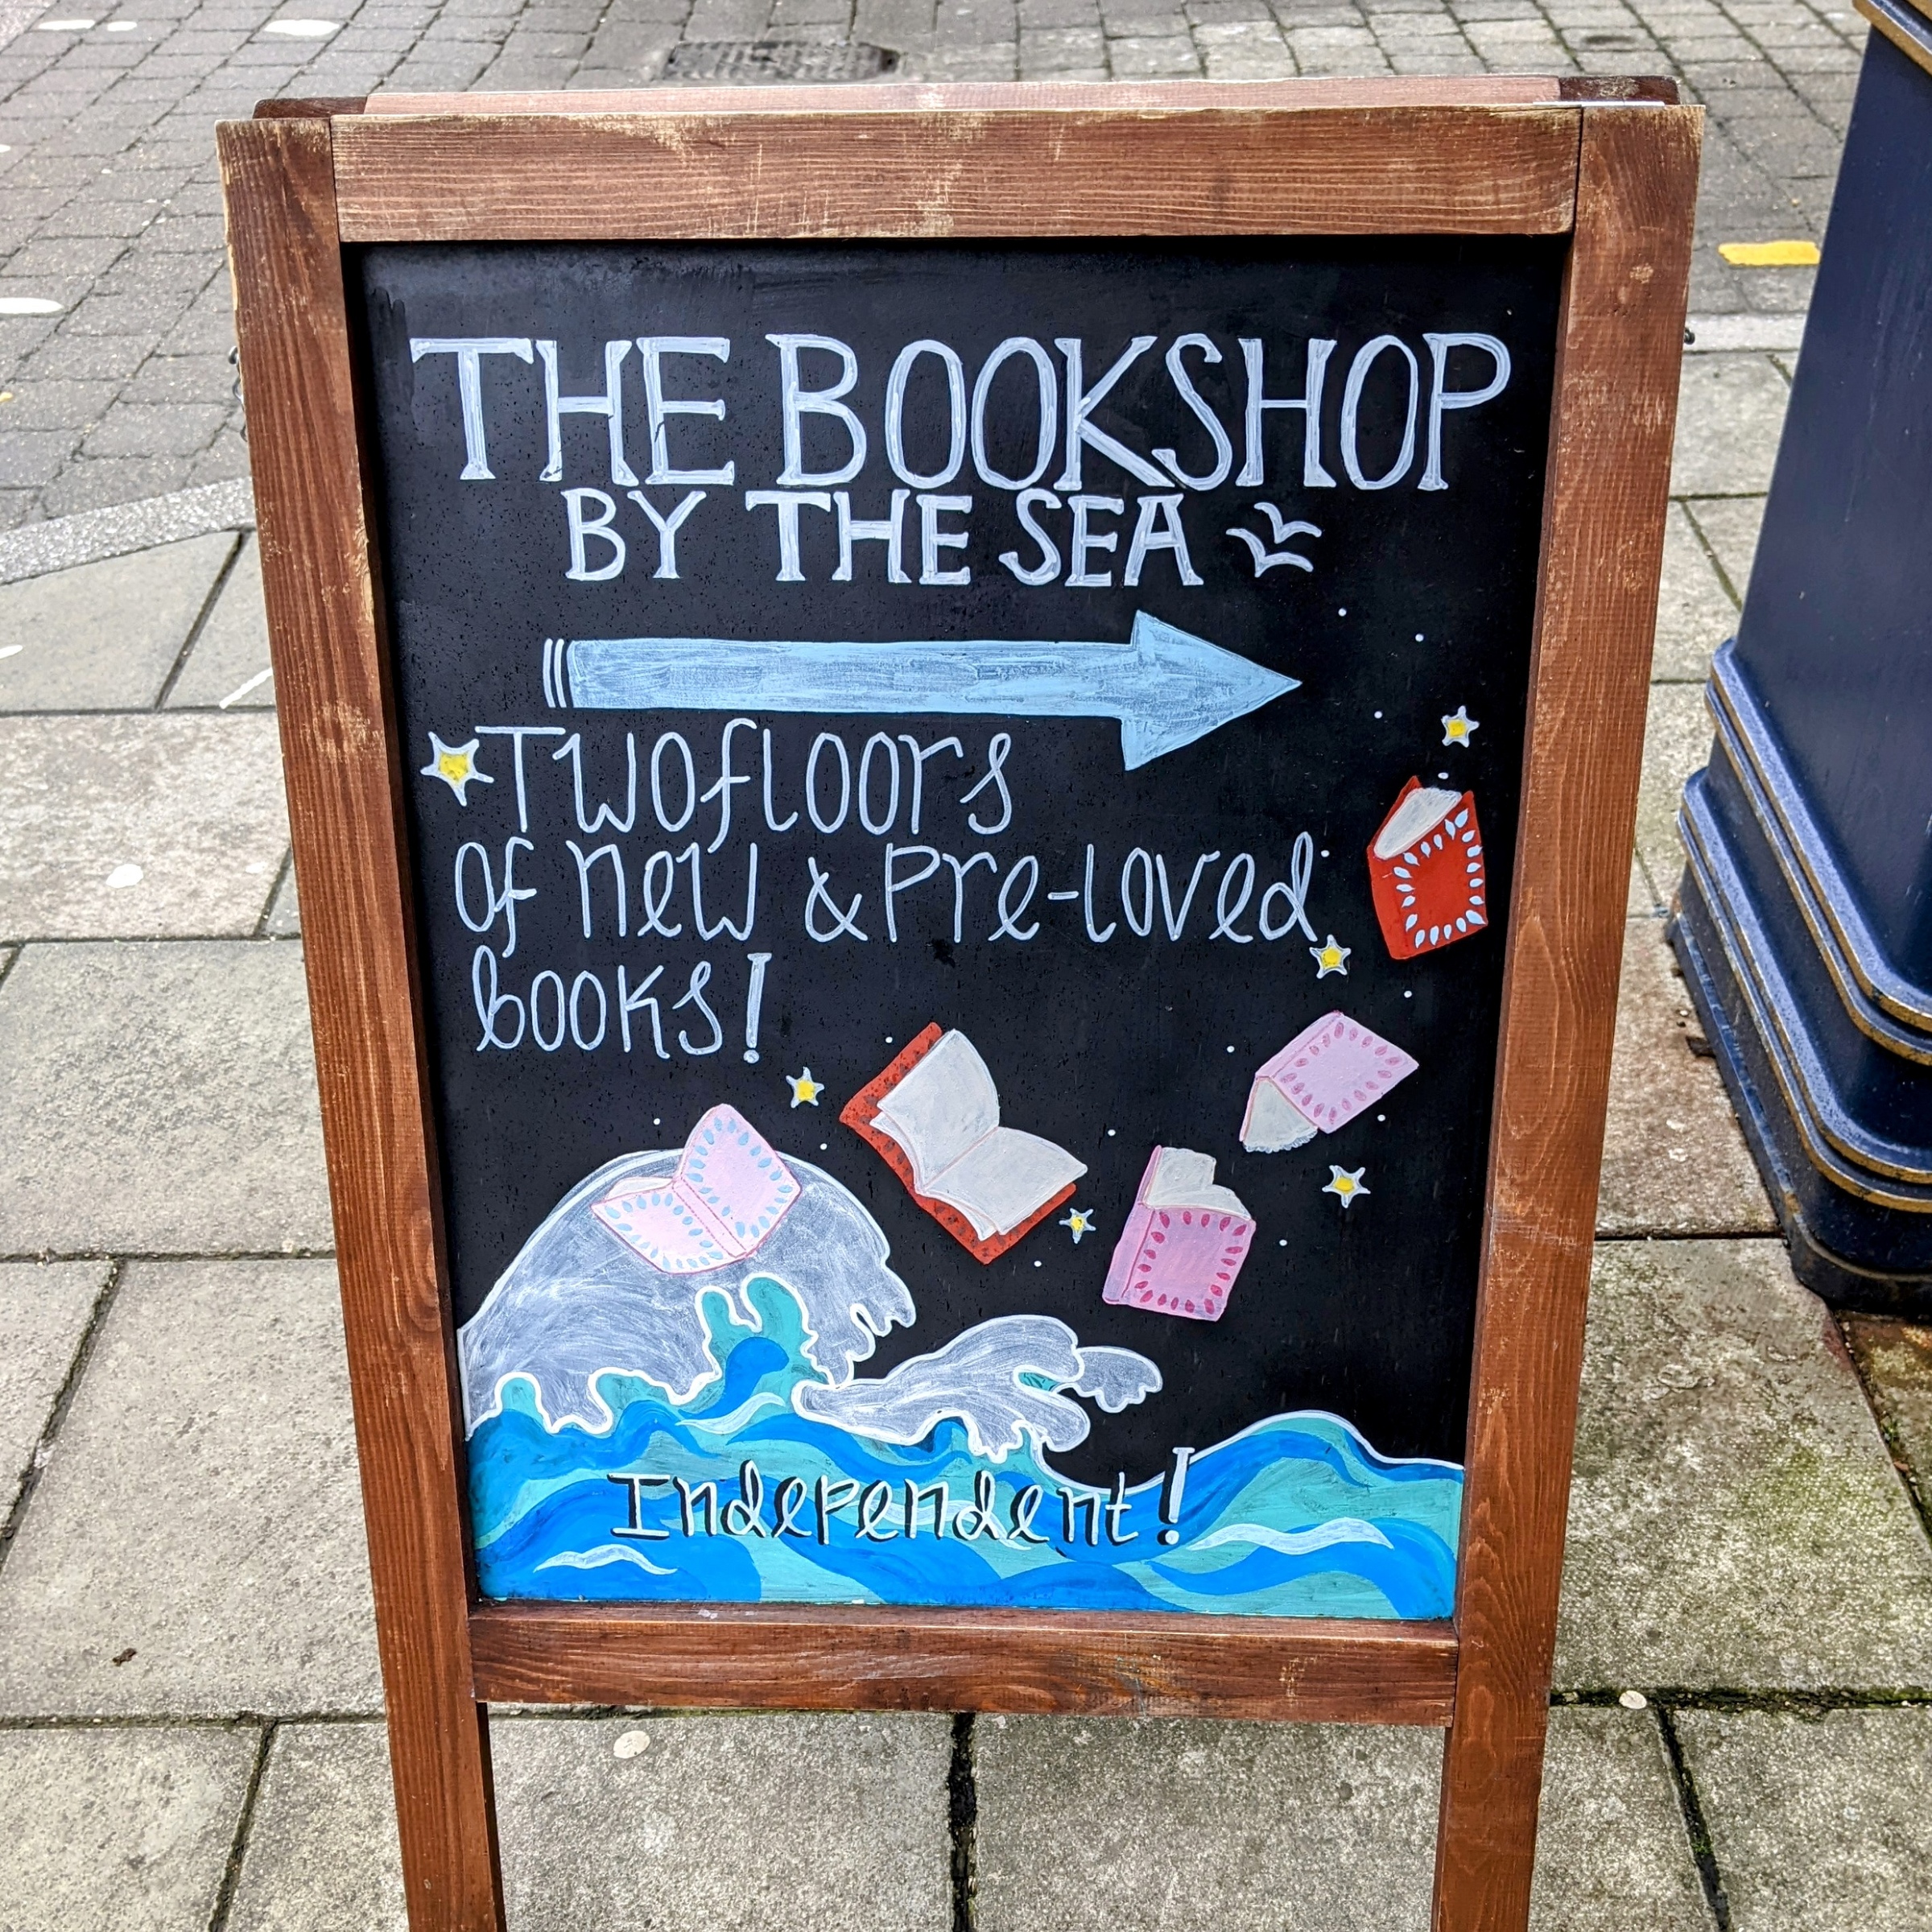 THE BOOKSHOP
BY THE SEA
Two floors
of new & Pre-loved
books!
Independent!